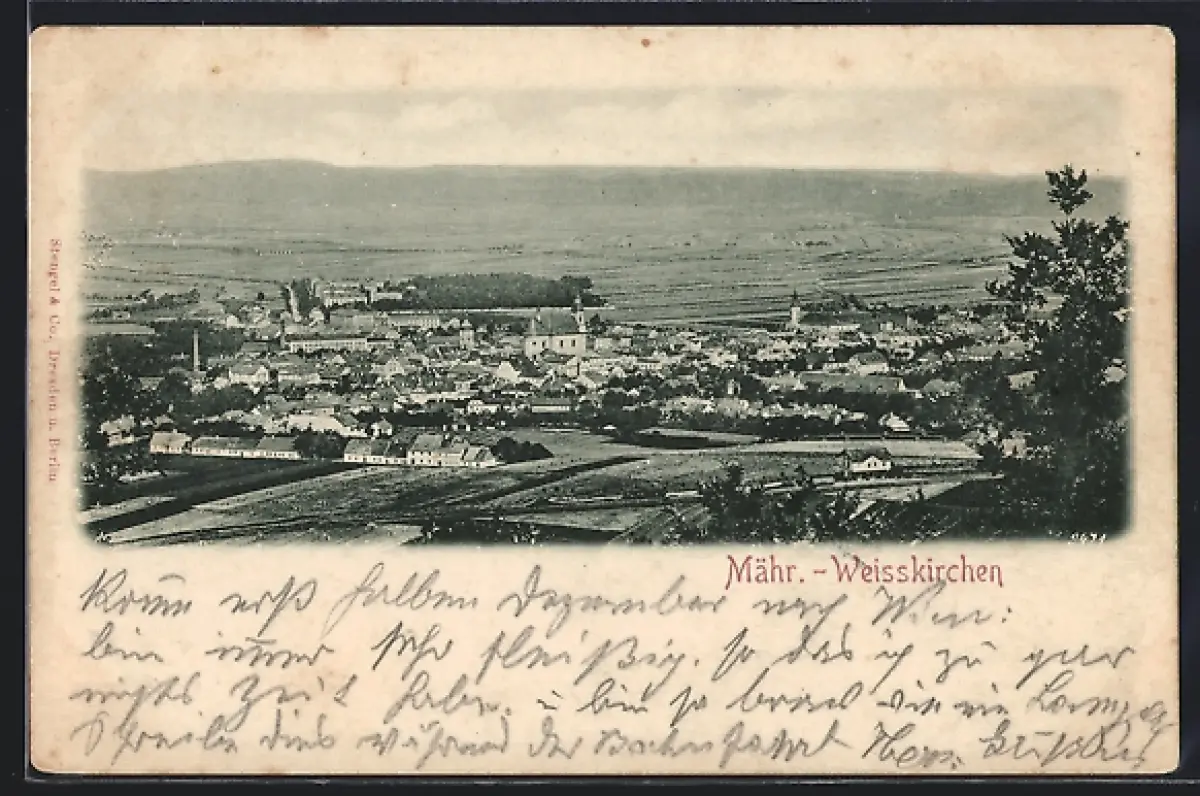 Stengel & Co., Dresden u. Berlin
Mähr. - Weisskirchen
Kom̄e erst halben Dezember nach Wien:
bin im̄er sehr fleißig, so das ich zu gar
nichts Zeit habe, bin so brav wie ein
Schreibe dies während der Bahnfahrt